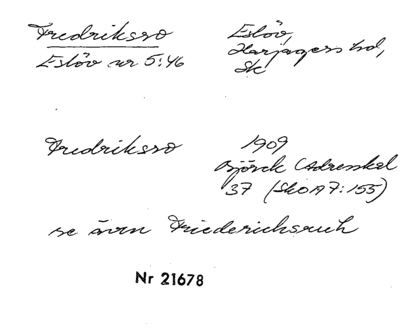 Fredriksro Eslöv,
Eslöv nr 5:46 Harjagers hd,
Sk
Fredriksro 1909
Björck Adresskal
37 (SkOA7:155)
se även Friederichsruh
Nr 21678